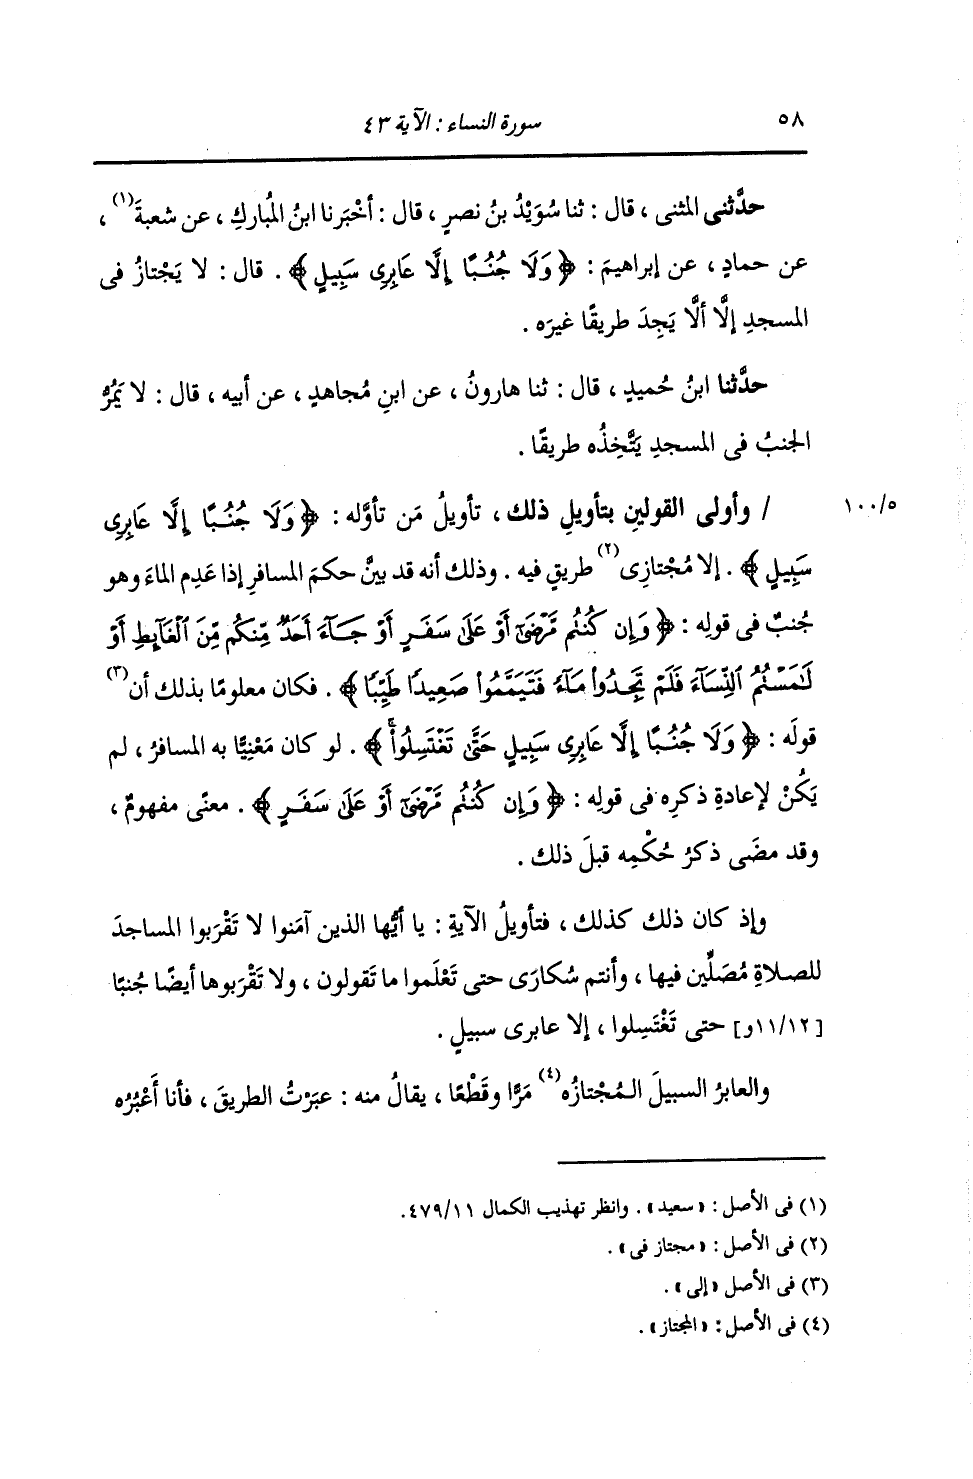 ٥٨
سورة النساء : الآية ٤٣
حدَّثنى المثنى ، قال : ثنا سُوَيْدُ بنُ نصرٍ ، قال : أخْبَرنا ابنُ المُباركِ ، عن شعبةَ(١) ،
عن حمادٍ ، عن إبراهيمَ : ﴿ وَلَا جُنُبًا إِلَّا عَابِرِى سَبِيلٍ ﴾ . قال : لا يَجْتازُ فى
المسجدِ إلَّا ألَّا يَجِدَ طريقًا غيرَه .
حدَّثنا ابنُ حُميدٍ ، قال : ثنا هارونُ ، عن ابنِ مُجاهدٍ ، عن أبيه ، قال : لا يَمُرُّ
الجنبُ فى المسجدِ يَتَّخِذُه طريقًا .
٥/ ١٠٠
/ وأولى القولينِ بتأويلِ ذلك ، تأويلُ مَن تأوَّله : ﴿ وَلَا جُنُبًا إِلَّا عَابِرِى
سَبِيلٍ ﴾ . إلا مُجْتازِى(٢) طريقٍ فيه . وذلك أنه قد بينَّ حكمَ المسافرِ إذا عَدِم الماءَ وهو
جُنبٌ فى قولِه : ﴿ وَإِن كُنتُم مَّرْضَىٰٓ أَوْ عَلَىٰ سَفَرٍ أَوْ جَآءَ أَحَدٌ مِّنكُم مِّنَ ٱلْغَآئِطِ أَوْ
لَٰمَسْتُمُ ٱلنِّسَآءَ فَلَمْ تَجِدُوا۟ مَآءً فَتَيَمَّمُوا۟ صَعِيدًا طَيِّبًا ﴾ . فكان معلومًا بذلك أن(٣)
قولَه : ﴿ وَلَا جُنُبًا إِلَّا عَابِرِى سَبِيلٍ حَتَّىٰ تَغْتَسِلُوا۟ ﴾ . لو كان مَعْنِيًّا به المسافرُ ، لم
يَكُنْ لإعادةِ ذكرِه فى قولِه : ﴿ وَإِن كُنتُم مَّرْضَىٰٓ أَوْ عَلَىٰ سَفَرٍ ﴾ . معنًى مفهومٌ ،
وقد مضَى ذكرُ حُكْمِه قبلَ ذلك .
وإذ كان ذلك كذلك ، فتأويلُ الآيةِ : يا أيُّها الذين آمَنوا لا تَقْرَبوا المساجدَ
للصلاةِ مُصَلِّين فيها ، وأنتم سُكارَى حتى تَعْلَموا ما تَقولون ، ولا تَقْرَبوها أيضًا جُنبًا
[١١/١٢و] حتى تَغْتَسِلوا ، إلا عابرى سبيلٍ .
والعابرُ السبيلَ المُجْتازُه(٤) مَرًّا وقَطْعًا ، يقالُ منه : عبَرْتُ الطريقَ ، فأنا أَعْبُرُه
(١) فى الأصل : « سعيد » . وانظر تهذيب الكمال ١١/ ٤٧٩.
(٢) فى الأصل : « مجتاز فى » .
(٣) فى الأصل « إلى » .
(٤) فى الأصل : « المجتاز » .